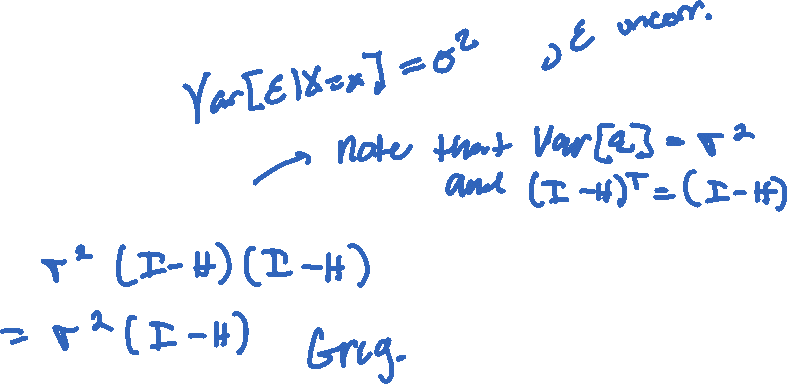 Var[ε|X=x] = σ² , ε uncorr.
note that Var[ε] = σ²
and (I-H)ᵀ = (I-H)
σ² (I-H)(I-H)
= σ² (I-H)